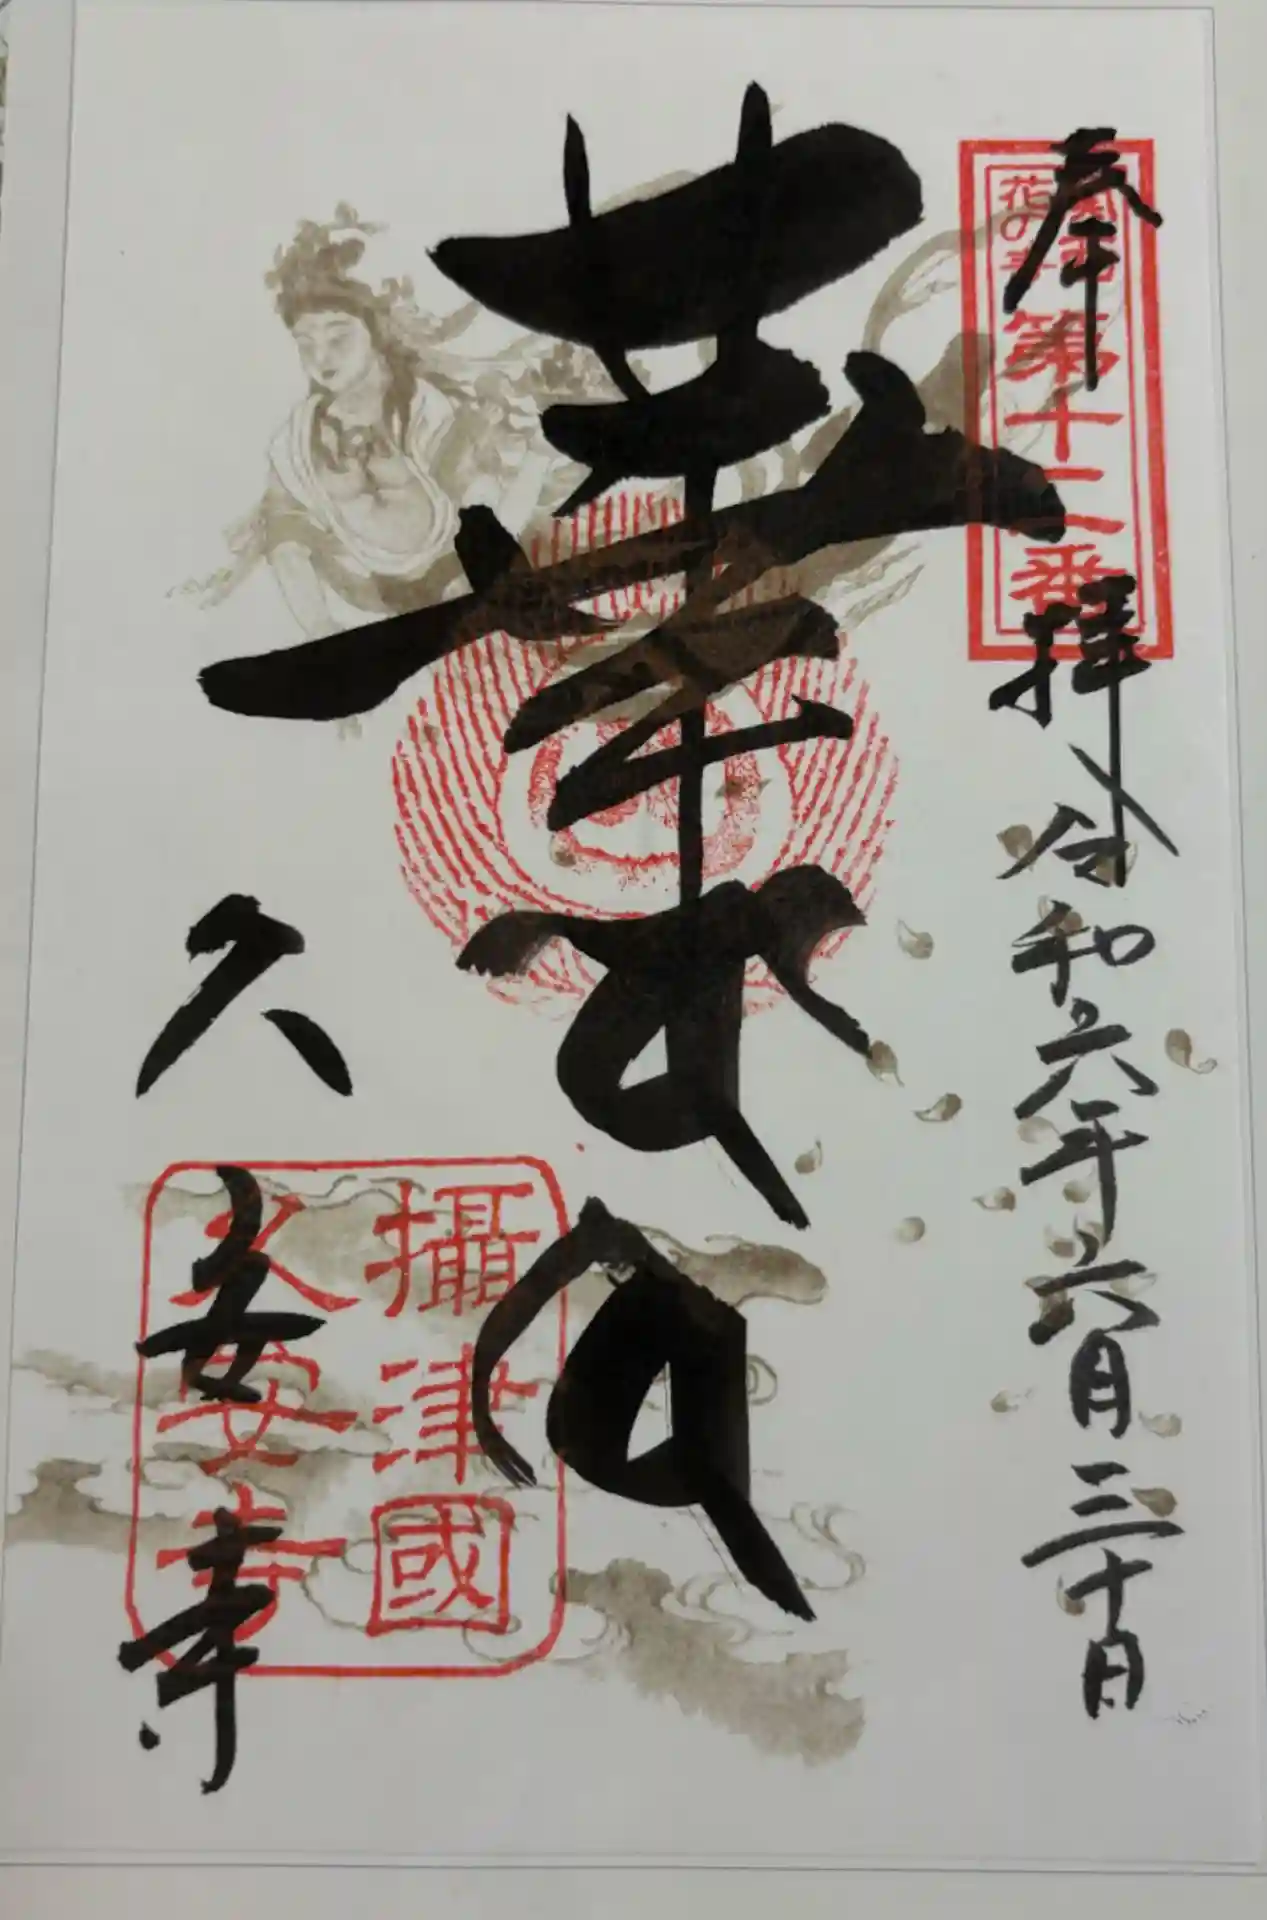 奉拝 令和六年六月三十日
関西
花の寺
第十二番
久安寺
攝津國
久安寺